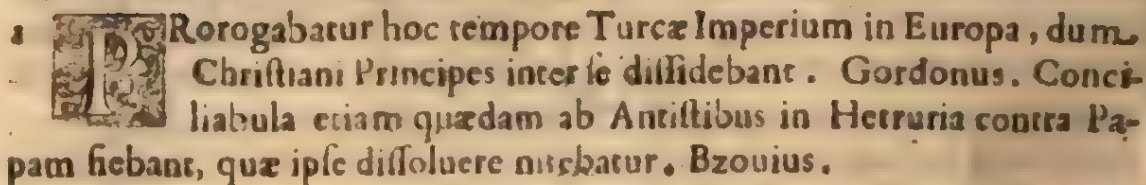 1 PRorogabatur hoc tempore Turcæ Imperium in Europa, dum
Chriſtiani Principes inter ſe diſſidebant. Gordonus. Conci-
liabula etiam quædam ab Antiſtibus in Hetruria contra Pa-
pam fiebant, quæ ipſe diſſoluere nitebatur. Bzouius.